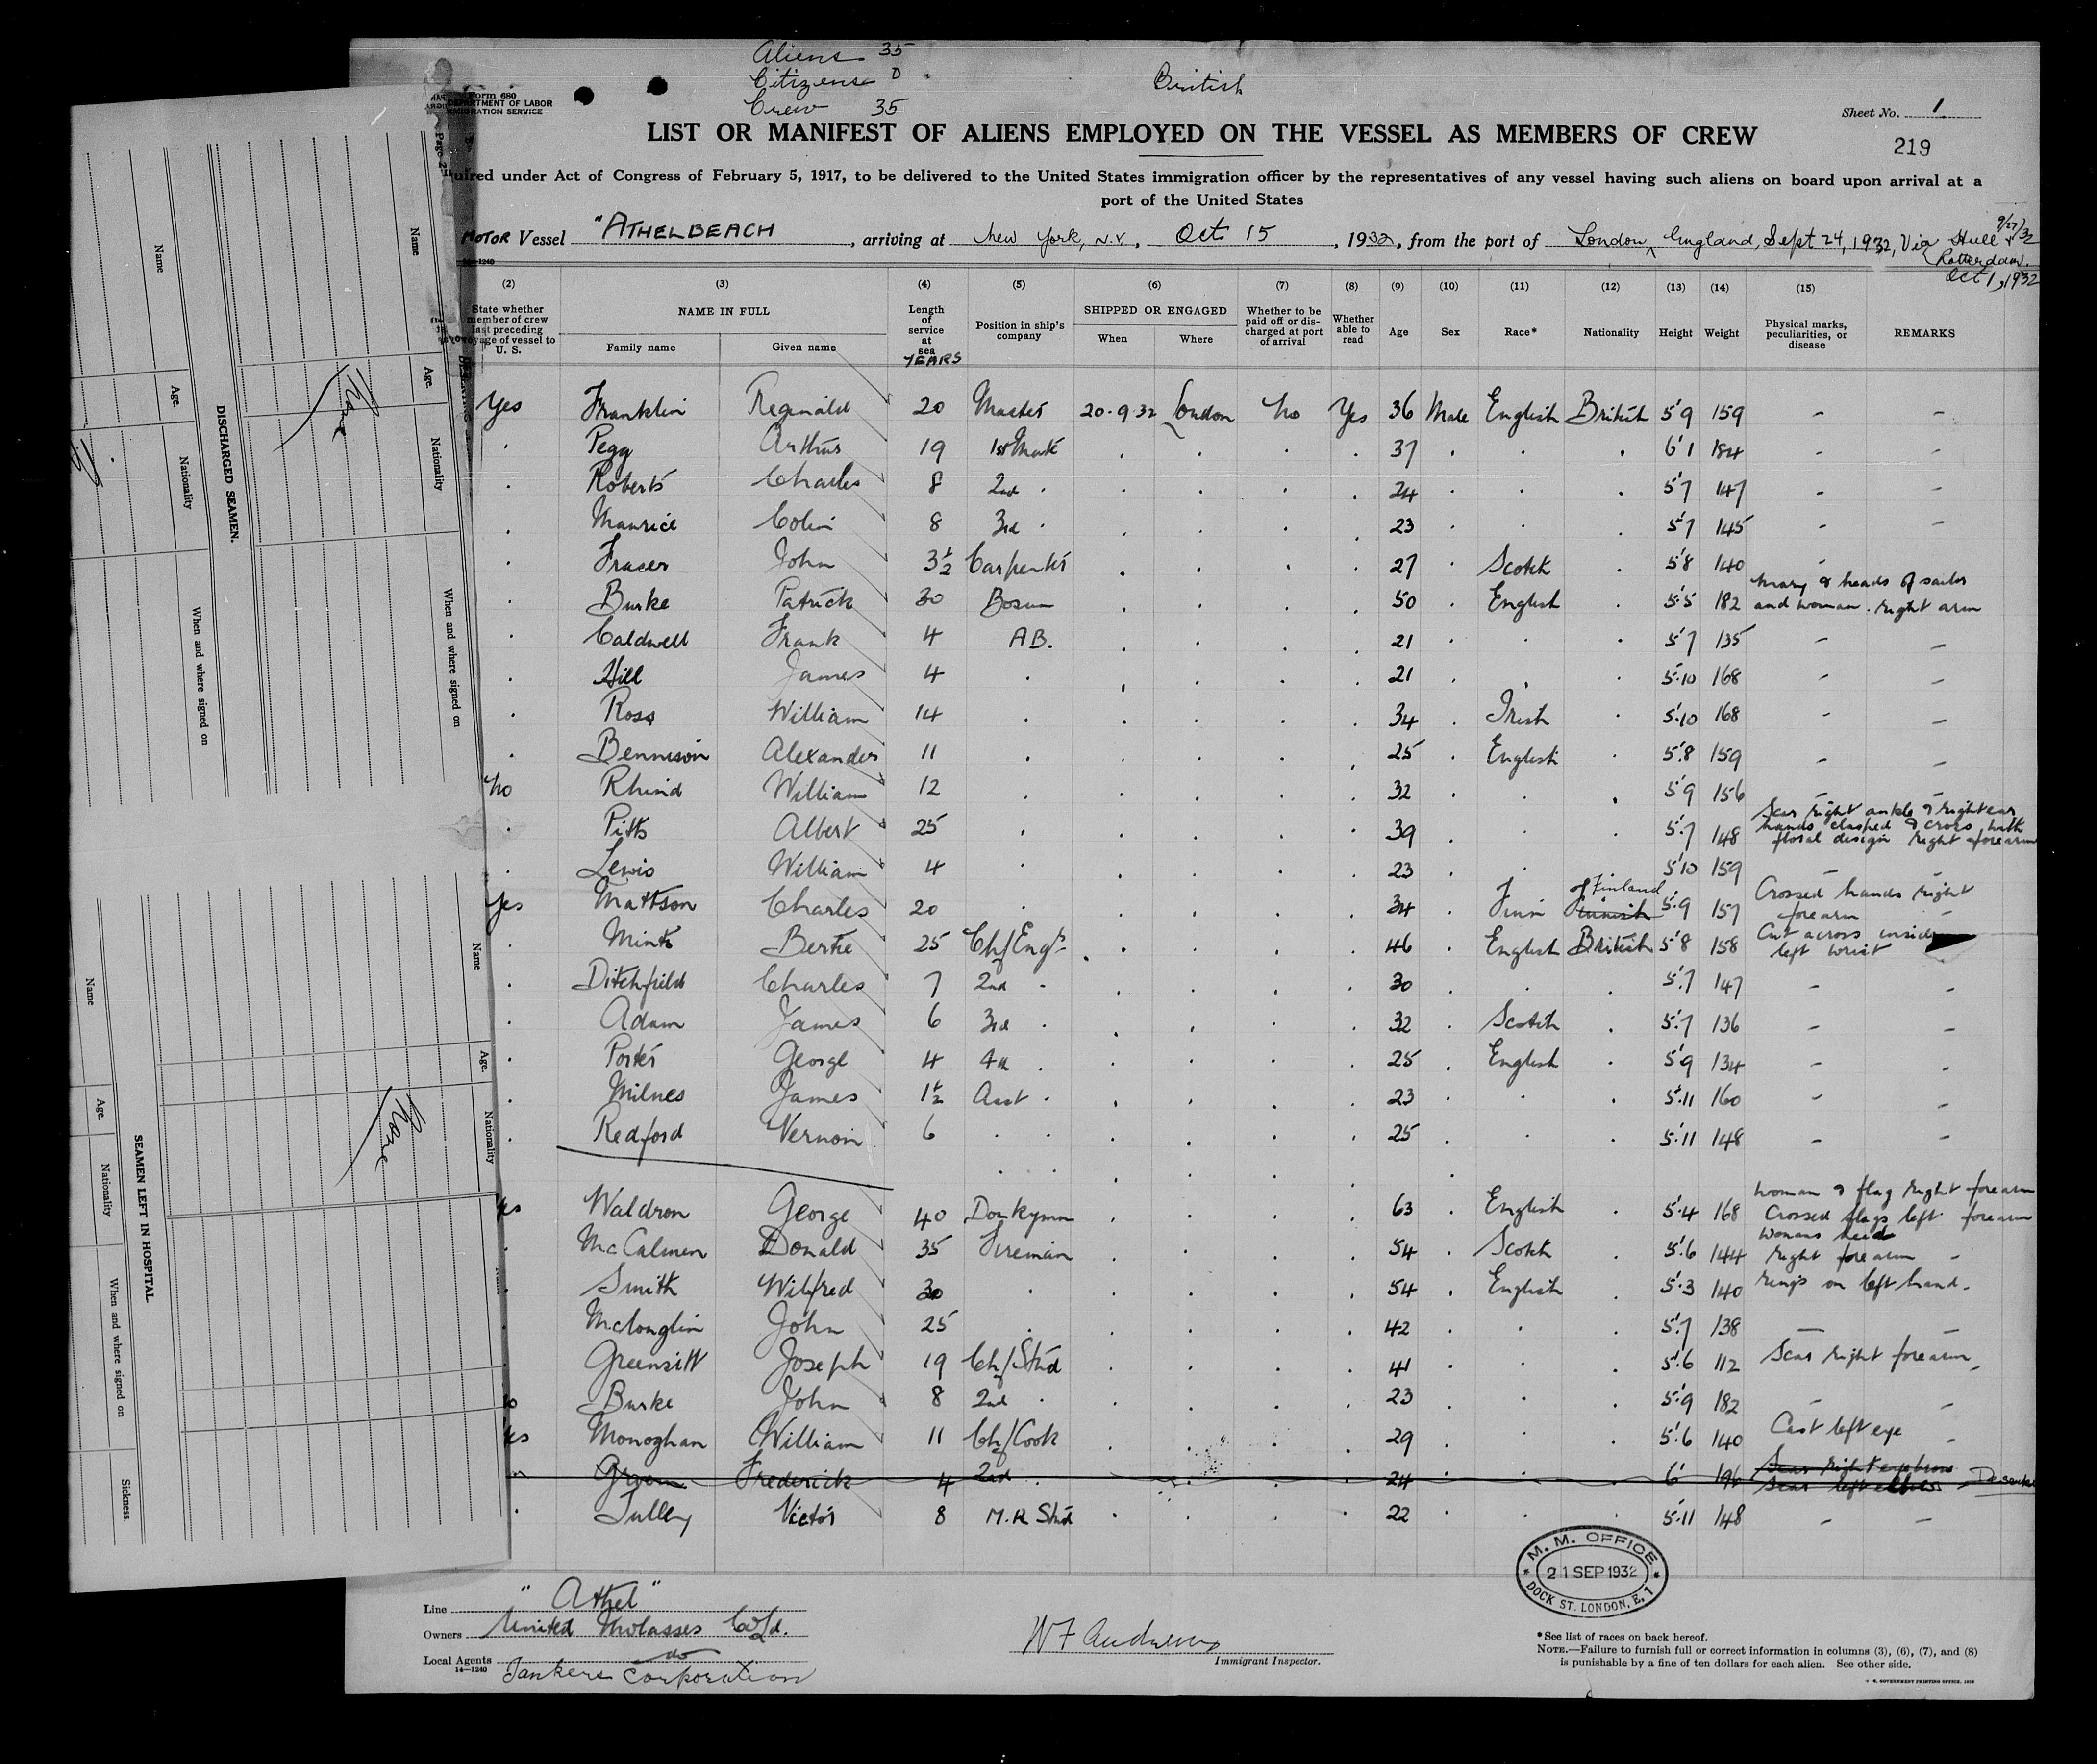 Aliens 35
Citizens 0
Crew 35
British
Form 680
DEPARTMENT OF LABOR
IMMIGRATION SERVICE
Sheet No. 1
LIST OR MANIFEST OF ALIENS EMPLOYED ON THE VESSEL AS MEMBERS OF CREW
219
uired under Act of Congress of February 5, 1917, to be delivered to the United States immigration officer by the representatives of any vessel having such aliens on board upon arrival at a
port of the United States
MOTOR Vessel "ATHELBEACH, arriving at New York, N.Y., Oct 15, 1932, from the port of London, England, Sept 24, 1932, Via Hull 9/27/32
Rotterdam.
Oct 1, 1932
(2) (3) (4) (5) (6) (7) (8) (9) (10) (11) (12) (13) (14) (15)
State whether member of crew last preceding voyage of vessel to U. S. NAME IN FULL Family name Given name Length of service at sea YEARS Position in ship's company SHIPPED OR ENGAGED When Where Whether to be paid off or discharged at port of arrival Whether able to read Age Sex Race* Nationality Height Weight Physical marks, peculiarities, or disease REMARKS
Yes Franklin Reginald 20 Master 20.9.32 London No Yes 36 Male English British 5'9 159 - -
. Pegg Arthur 19 1st Mate . . . . 37 . . . 6'1 184 - -
. Roberts Charles 8 2nd . . . . . 24 . . . 5'7 147 - -
. Maurice Colin 8 3rd . . . . . 23 . . . 5'7 145 - -
. Fraser John 3½ Carpenter . . . . 27 . Scotch . 5'8 140 -
. Burke Patrick 30 Bosun . . . . 50 . English . 5'5 182 Mary & heads of sailor
and woman. right arm
. Caldwell Frank 4 AB. . . . . 21 . . . 5'7 135 - -
. Hill James 4 . . . . . 21 . . . 5'10 168 - -
. Ross William 14 . . . . . 34 . Irish . 5'10 168 - -
. Bennison Alexander 11 . . . . . 25 . English . 5'8 159 - -
No Rhind William 12 . . . . . 32 . . . 5'9 156 - -
. Pitts Albert 25 . . . . . 39 . . . 5'7 148 Scar right ankle & right ear
hands clasped & cross with
floral design right forearm
. Lewis William 4 . . . . . 23 . . . 5'10 159 - -
Yes Mattson Charles 20 . . . . . 34 . Finn Finnish Finland 5'9 157 Crossed hands right
forearm -
. Mints Bertie 25 Ch/Engr . . . . 46 . English British 5'8 158 Cut across inside
left wrist
. Ditchfield Charles 7 2nd . . . . . 30 . . . 5'7 147 - -
. Adam James 6 3rd . . . . . 32 . Scotch . 5'7 136 - -
. Porter George 4 4th . . . . . 25 . English . 5'9 134 - -
. Milnes James 1½ Asst . . . . . 23 . . . 5'11 160 - -
. Redford Vernon 6 . . . . . . 25 . . . 5'11 148 - -
Yes Waldron George 40 Donkeyman . . . . 63 . English . 5'4 168 Woman & flag right forearm
Crossed flags left forearm
. McCalmen Donald 35 Fireman . . . . 54 . Scotch . 5'6 144 Womans head
right forearm -
. Smith Wilfred 30 . . . . . 54 . English . 5'3 140 rings on left hand.
. McLouglin John 25 . . . . . 42 . . . 5'7 138 - -
. Greensitt Joseph 19 Ch/Std . . . . 41 . . . 5'6 112 Scar right forearm -
No Burke John 8 2nd . . . . . 23 . . . 5'9 182 - -
Yes Monoghan William 11 Ch/Cook . . . . 29 . . . 5'6 140 Cast left eye -
Frederick 4 2nd . . . . 24 . . . 6' 196 Scar right eyebrow
Scar left elbow -
. Tulley Victor 8 M.R Std . . . . 22 . . . 5'11 148 - -
M. M. OFFICE
21 SEP 1932
DOCK ST. LONDON, E.1
Line "Athel"
Owners United Molasses Co Ld.
Local Agents do
14—1240
Tankers Corporation
W F Andrews
Immigrant Inspector.
*See list of races on back hereof.
NOTE.—Failure to furnish full or correct information in columns (3), (6), (7), and (8)
is punishable by a fine of ten dollars for each alien. See other side.
DISCHARGED SEAMEN.
Name Age. Nationality When and where signed on
Name Age. Nationality When and where signed on
None
SEAMEN LEFT IN HOSPITAL
Name Age. Nationality When and where signed on Sickness.
Name Age. Nationality
None